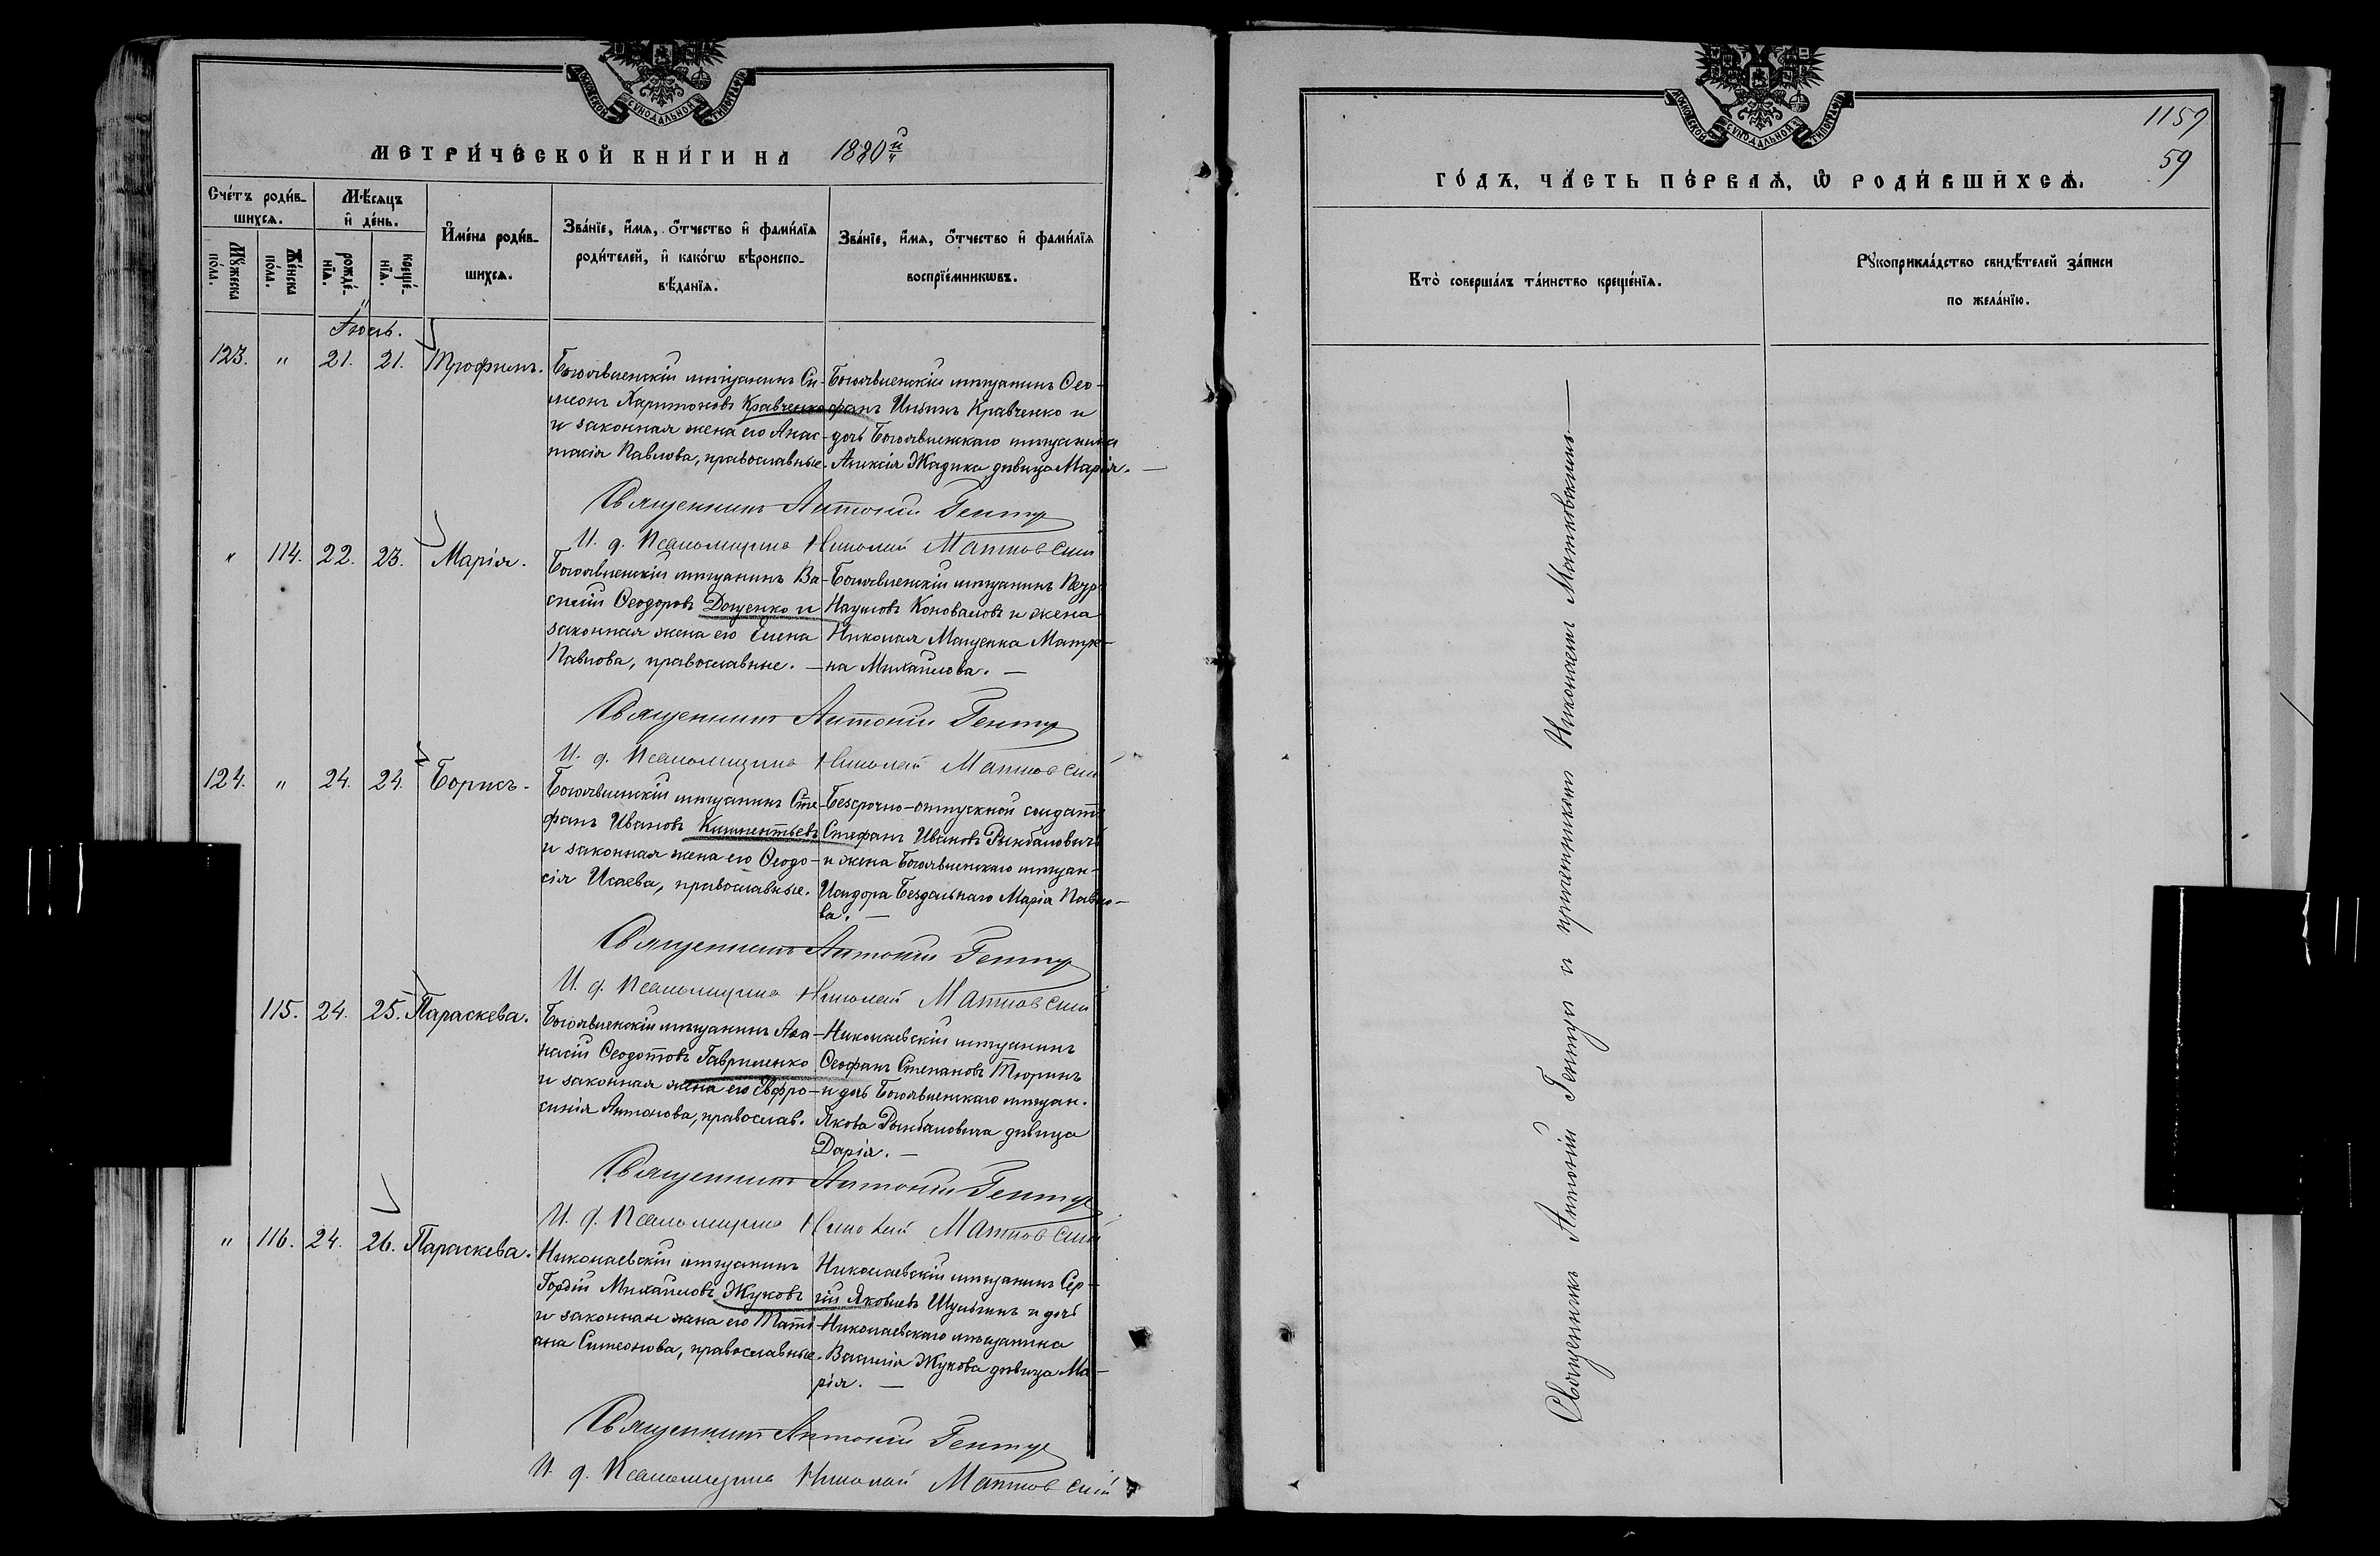 МОСКОВСКОЙ СѴНОДАЛЬНОЙ ТИПОГРАФІИ
МЕТРИ́ЧЕСКОЙ КНИ́ГИ НА 1880й
Сче́тъ роди́в-
шихсѧ.
Мꙋ́жеска
по́ла.
Же́нска
по́ла.
Мѣ́сѧцъ
и҆ де́нь.
рожде́-
нїѧ.
креще́-
нїѧ.
И҆мена̀ роди́в-
шихсѧ.
Зва́нїе, и҆́мѧ, ѻ҆́тчество и҆ фами́лїѧ
роди́телей, и҆ како́гѡ вѣроиспо-
вѣ́данїѧ.
Зва́нїе, и҆́мѧ, ѻ҆́тчество и҆ фами́лїѧ
воспрїе́мникѡвъ.
Іюль.
123. " 21. 21. Трофимъ.
Богоявленскій мѣщанинъ Си-
меонъ Харитоновъ Кравченко
и законная жена его Анас-
тасія Павлова, православные.
Богоявленскій мѣщанинъ Ѳео-
фанъ Ильинъ Кравченко и
дочь Богоявленскаго мѣщанина
Алексія Жадика дѣвица Марія. —
Священникъ Антоній Гентуз
И. д. Псаломщика Николай Матковскій
" 114. 22. 23. Марія.
Богоявленскій мѣщанинъ Ва-
силій Ѳеодоровъ Доценко и
законная жена его Елена
Павлова, православные. —
Богоявленскій мѣщанинъ Петръ
Наумовъ Коноваловъ и жена
Николая Мащенка Матре-
на Михайлова. —
Священникъ Антоній Гентуз
И. д. Псаломщика Николай Матковскій
124. " 24. 24. Борисъ.
Богоявленскій мѣщанинъ Сте-
фанъ Ивановъ Климентьевъ
и законная жена его Ѳеодо-
сія Исаева, православные.
Безсрочно-отпускной солдатъ
Стефанъ Ивановъ Рымбаловичъ
и жена Богоявленскаго мѣщан.
Исидора Бездольнаго Марія Павло-
ва. —
Священникъ Антоній Гентуз
И. д. Псаломщика Николай Матковскій
115. 24. 25. Параскева.
Богоявленскій мѣщанинъ Аѳа-
насій Ѳеодотовъ Гавриленко
и законная жена его Евфро-
синія Антонова, православ.
Николаевскій мѣщанинъ
Ѳеофанъ Степановъ Тюринъ
и дочь Богоявленскаго мѣщан.
Якова Рымбаловича дѣвица
Дарія. —
Священникъ Антоній Гентуз
И. д. Псаломщика Николай Матковскій
" 116. 24. 26. Параскева.
Николаевскій мѣщанинъ
Гордій Михайловъ Жуковъ
и законная жена его Таті-
ана Симеонова, православные.
Николаевскій мѣщанинъ Сер-
гій Яковлевъ Шульгинъ и дочь
Николаевскаго мѣщанина
Василія Жукова дѣвица Ма-
рія. —
Священникъ Антоній Гентуз
И. д. Псаломщика Николай Матковскій
МОСКОВСКОЙ СѴНОДАЛЬНОЙ ТИПОГРАФІИ
1159
59
ГО́ДЪ, ЧА́СТЬ ПЕ́РВАѦ, Ѡ҆ РОДИ́ВШИХСѦ.
Кто̀ соверша́лъ та́инство креще́нїѧ.
Рꙋкоприкла́дство свидѣ́телей за́писи
по жела́нїю.
Священникъ Антоній Гентуз и причетникъ Николаемъ Матковскимъ —